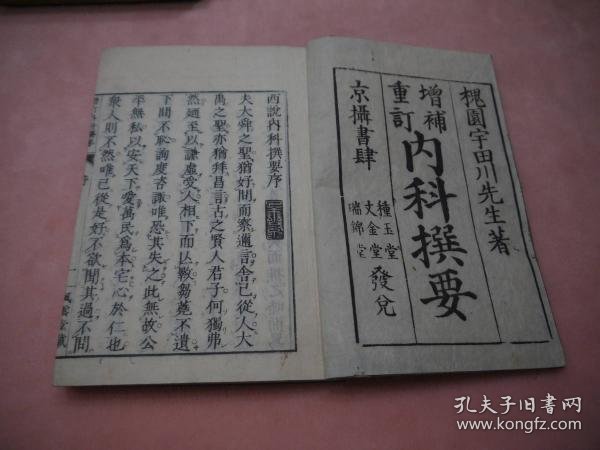 槐園宇田川先生著
增補
重訂
内科撰要
京攝書肆
種玉堂
文金堂
瑞錦堂
發兌
西說內科撰要序
夫大舜之聖猶好問而察邇言舍己從人大
禹之聖亦猶拜昌言古之賢人君子何獨弗
然廼至以謙虛受人相下而
芻蕘不遺
下問不恥詢度咨諏唯恐其失之此無故公
平無私以安天下愛萬民爲本宅心於仁也
衆人則不然唯己從是好不欲聞其過不問
孔夫子旧书网
www.kongfz.com